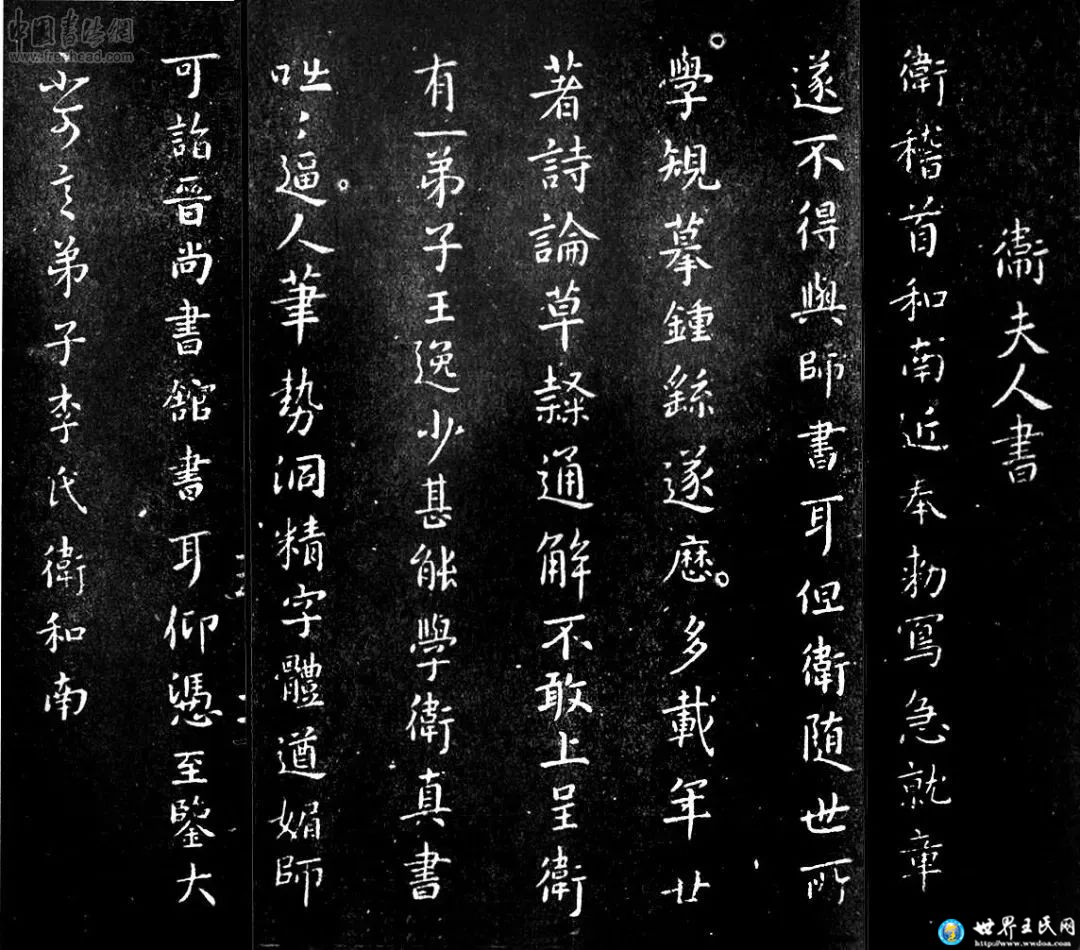 衛夫人書
衛稽首和南近奉勑寫急就章
遂不得與師書耳但衛随世所
學規摹鍾繇遂歴多載年廿
著詩論草隸通解不敢上呈衛
有一弟子王逸少甚能學衛真書
咄:逼人筆勢洞精字體遒媚師
可詣晉尚書舘書耳仰憑至鑒大
弟子李氏衛和南
中国书法網
www.freehead.com
世界王氏网
http://www.wwdoa.com